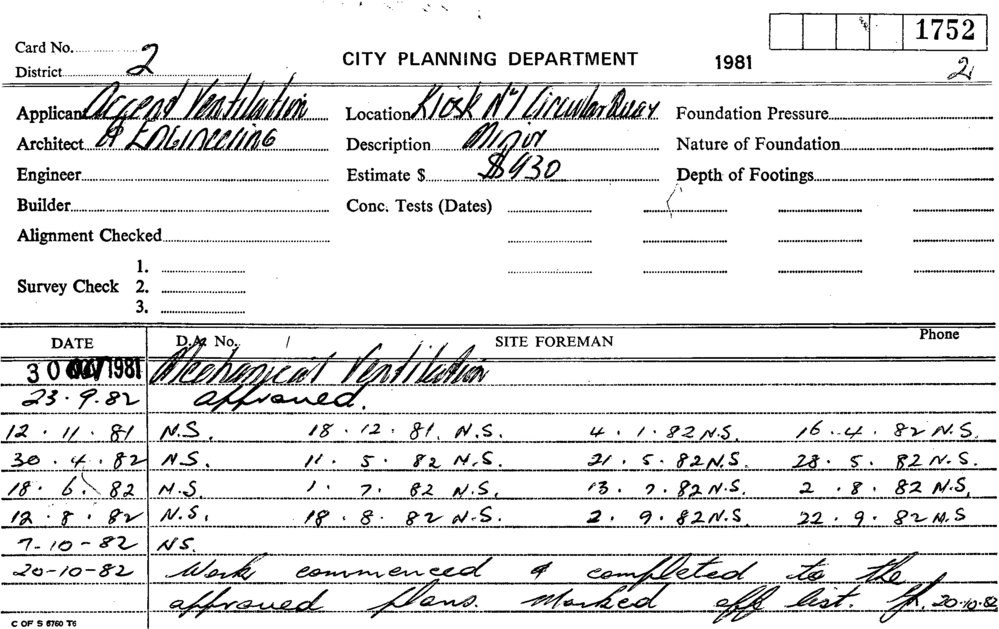 1752
Card No. 2 CITY PLANNING DEPARTMENT 1981 2
District
Applicant Accend Ventilation Location Kiosk No1 Circular Quay Foundation Pressure
Architect & Engineering Description Minor Nature of Foundation
Engineer Estimate $ $930 Depth of Footings
Builder Conc. Tests (Dates)
Alignment Checked
1.
Survey Check 2.
3.
DATE D.A. No. SITE FOREMAN Phone
30 1981 Mechanical Ventilation
23.9.82 approved.
12.11.81 N.S. 18.12.81. N.S. 4.1.82 N.S. 16.4.82 N.S.
30.4.82 N.S. 11.5.82 N.S. 21.5.82 N.S. 28.5.82 N.S.
18.6.82 N.S. 1.7.82 N.S. 13.7.82 N.S. 2.8.82 N.S.
12.8.82 N.S. 18.8.82 N.S. 2.9.82 N.S. 22.9.82 N.S
7-10-82 NS.
20-10-82 Work commenced & completed to the
approved plans. Marked off list. 20.10.82
C OF S 6760 T6